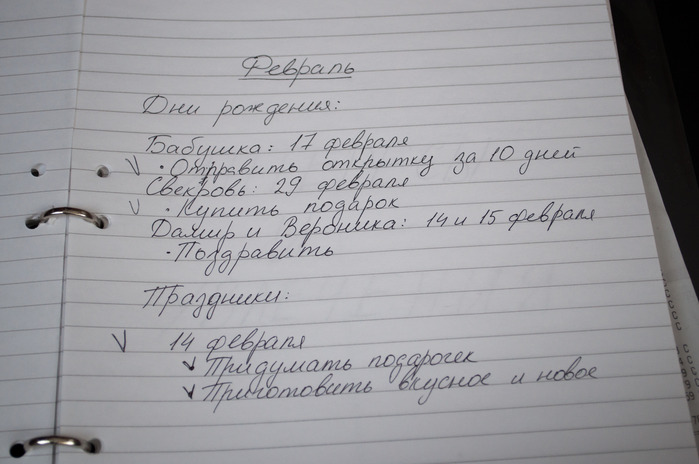 Февраль
Дни рождения:
Бабушка: 17 февраля
✓ · Отправить открытку за 10 дней
Свекровь: 29 февраля
✓ · Купить подарок
Дамир и Вероника: 14 и 15 февраля
· Поздравить
Праздники:
✓ 14 февраля
✓ Придумать подарочек
✓ Приготовить вкусное и новое